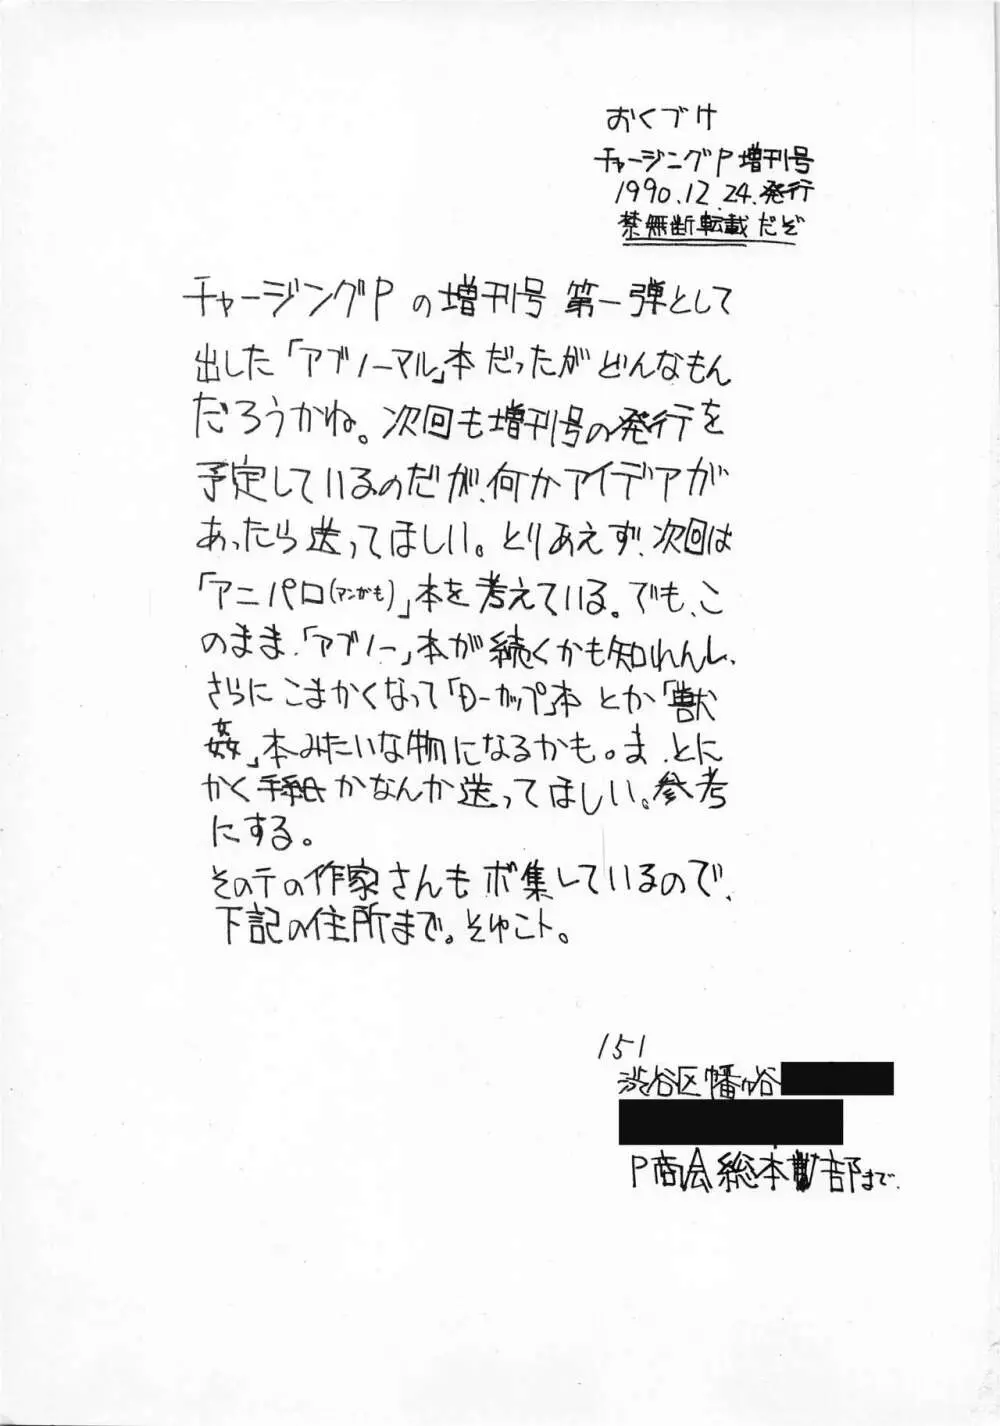 おくづけ
チャージングP増刊号
1990.12.24.発行
禁無断転載だぞ
チャージングPの増刊号 第一弾として
出した「アブノーマル」本だったがどんなもん
だろうかね。次回も増刊号の発行を
予定しているのだが、何かアイデアが
あったら送ってほしい。とりあえず、次回は
「アニパロ(マンガも)」本を考えている。でも、こ
のまま、「アブノー」本が続くかも知れんし、
さらにこまかくなって「Dーカップ」本 とか「獣
姦」本みたいな物になるかも。ま、とに
かく手紙かなんか送ってほしい。参考
にする。
そのテの作家さんもボ集しているので、
下記の住所まで。そゆこト。
151
渋谷区幡ヶ谷
P商会総本部まで.